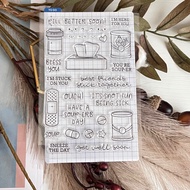 GET BETTER SOON!
I'M HERE
FOR YOU
BLESS
YOU
YOU'RE
SOUPER
I'M STUCK
ON YOU
best friends
stick together
OUCH!
IT'S NOT FUN
BEING SICK.
HAVE A
SOUP-ERB
DAY!
SNEEZE
THE DAY
get well soon